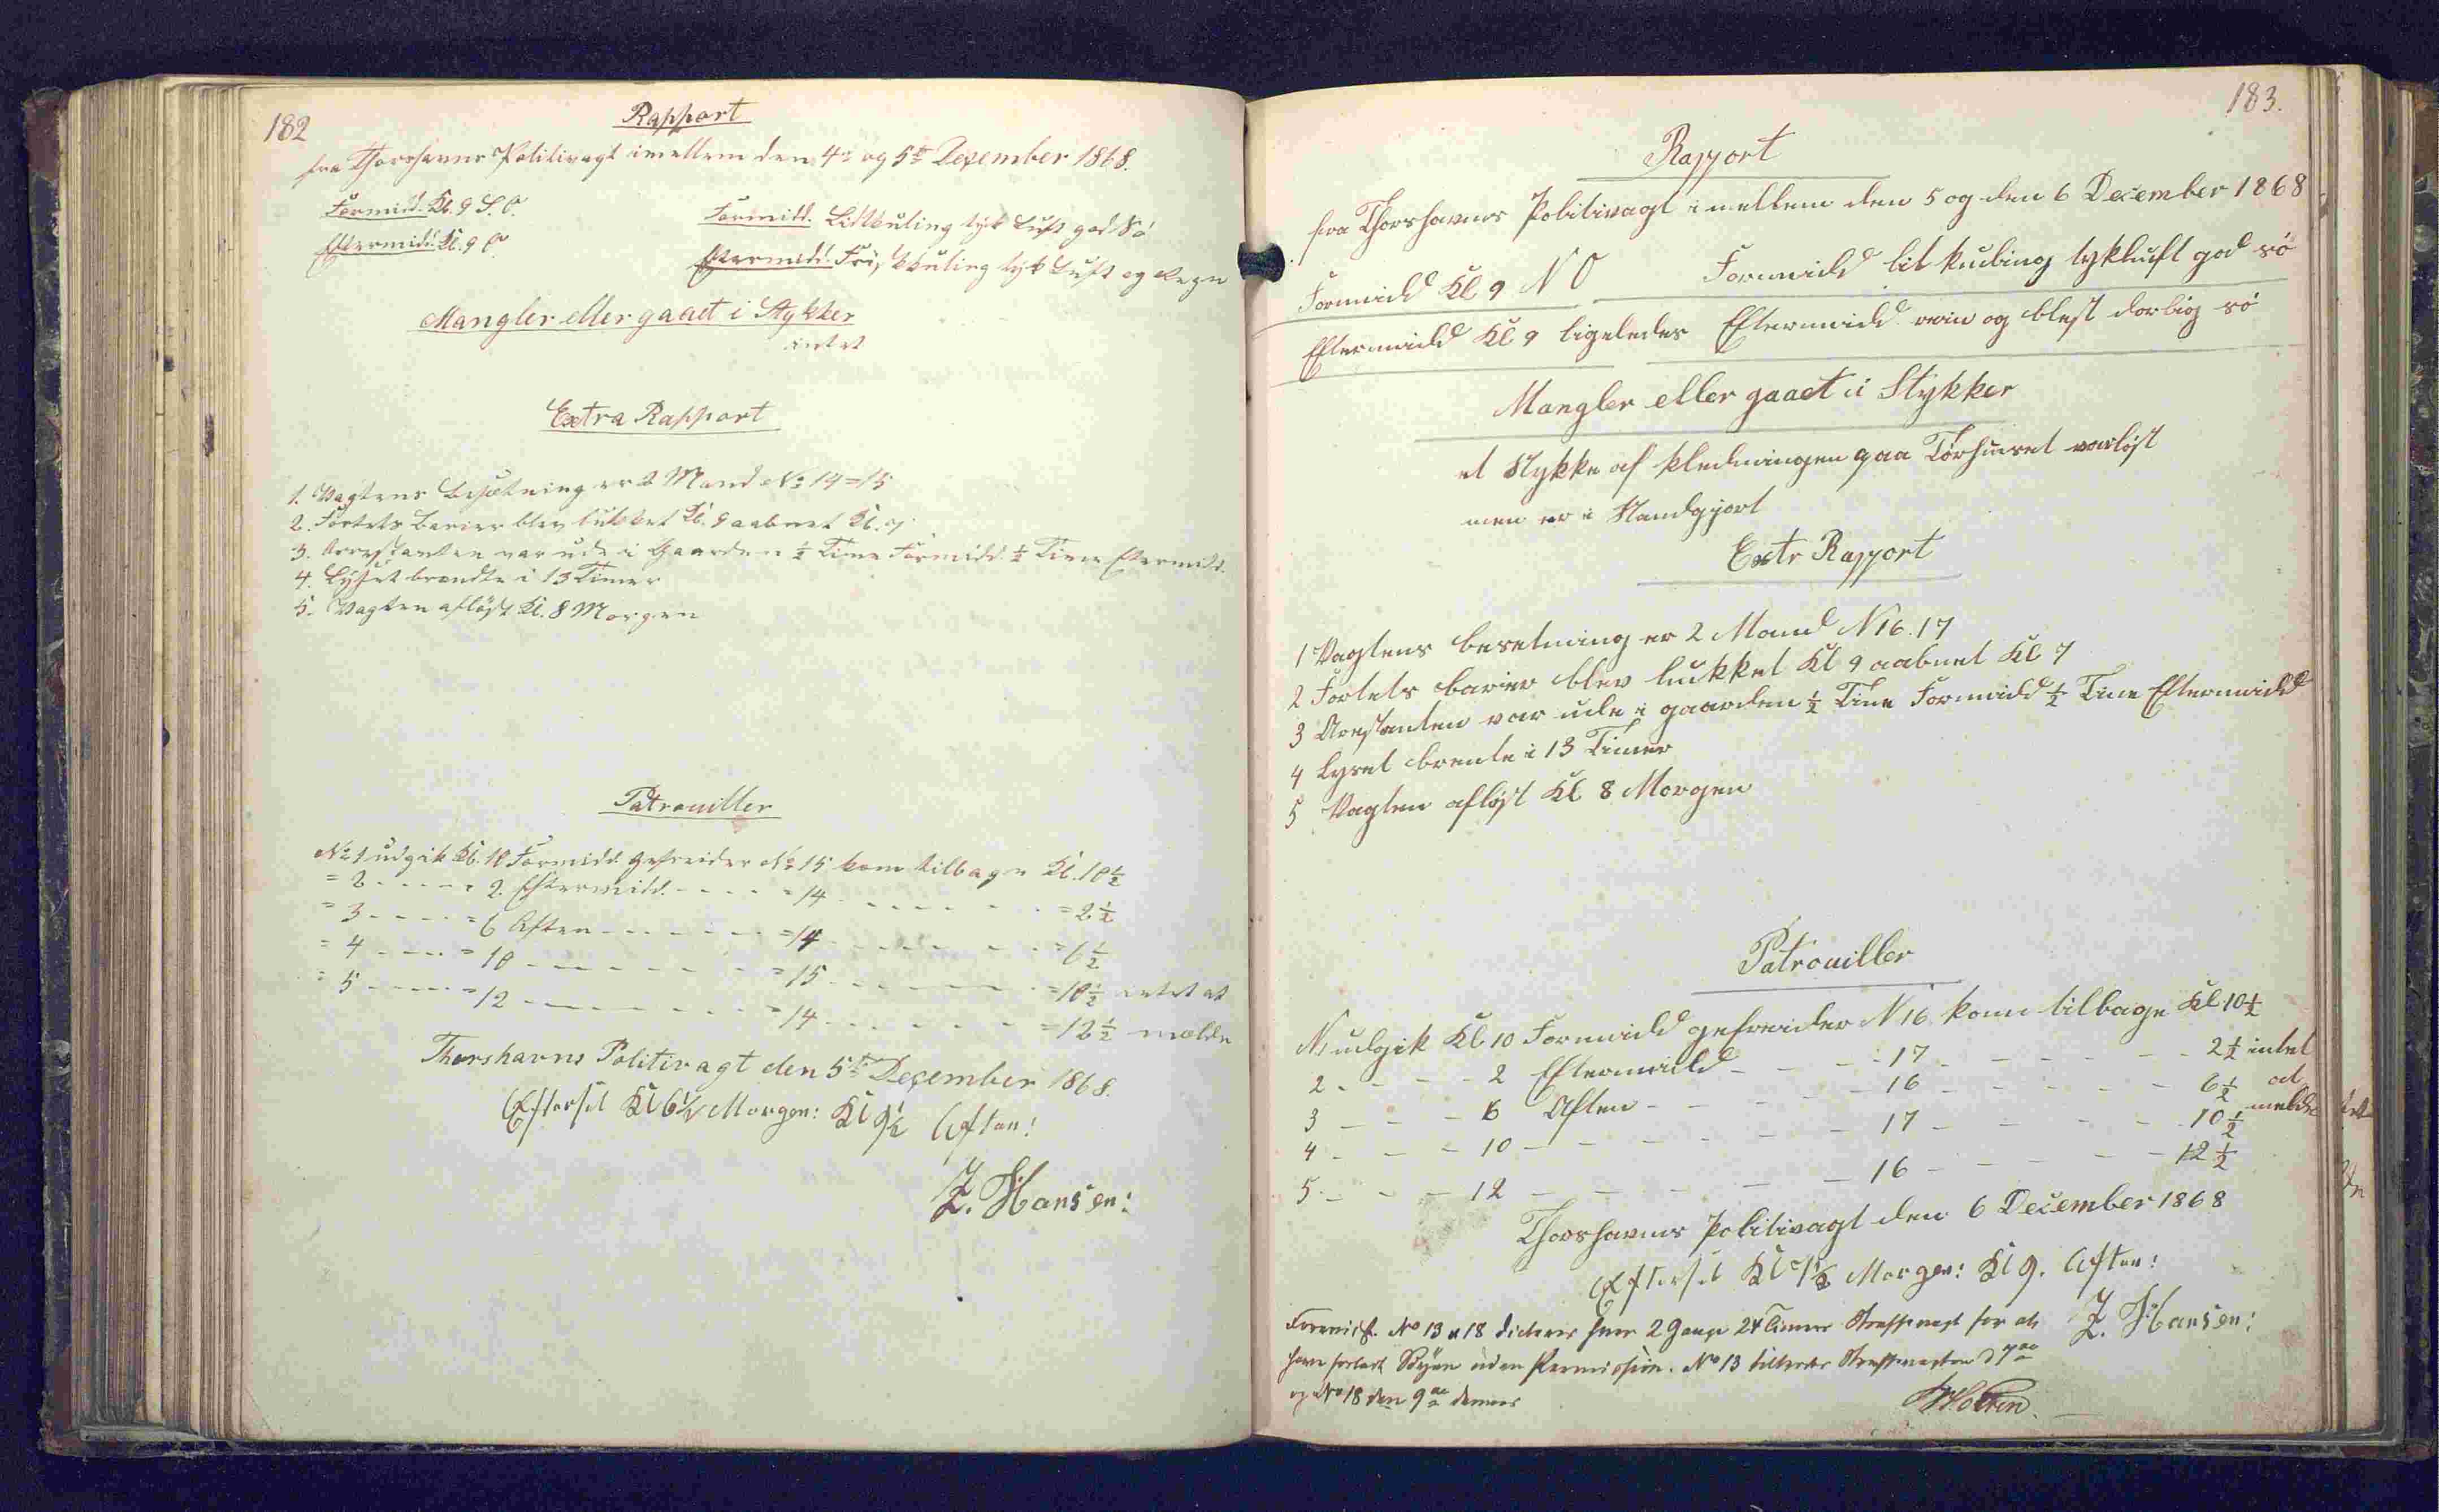 182
Rapport
fra Thorshavns Politivagt imellem den 4de og 5te Dezember 1868.
Formidd. Kl. 9 S.O.
Eftermidd. Kl. 9 O
Formidd. Lidkuling tyk Luft god Sö
Eftermidd. Friskkuling tyk Luft og Regn
Mangler eller gaaet i Stykker
intet
Extra Rapport
1. Vagtens Besætning er 2 Mand No 14=15
2. Fortets Barier blev lukket Kl. 9 aabnet Kl. 7
3. Arrestanten var ude i Gaarden ½ Time Formidd. ½ Time Eftermidd.
4. Lyset brændte i 13 Timer
5. Vagten aflöst Kl. 8 Morgen
Patrouiller
No 1 udgik Kl. 10 Formidd. Gefreider No 15 kom tilbage Kl. 10½
= 2 - - - - = 2. Eftermidd. - - - - = 14 - - - - - - = 2½
= 3 - - - - = 6 Aften - - - - - = 14 - - - - - - = 6½
= 4 - - - - = 10 - - - - - - = 15 - - - - - - = 10½ intet at
= 5 - - - - = 12 - - - - - - = 14 - - - - - - = 12½ mælde
Thorshavns Politivagt den 5te Dezember 1868.
Eftersét Kl 6½ Morgen: Kl 9½ Aften:
Z. Hansen:
183.
Rapport
fra Thorshavns Politivagt imellem den 5 og den 6 December 1868
Formidd Kl 9 N O Formidd lit kuling tykluft god sö
Eftermidd Kl 9 ligeledes Eftermidd rein og blest dorlig sö
Mangler eller gaaet i Stykker
et Stykke af kledningen paa Törhuset var löst
men er i Standgjort
Extr Rapport
1 Vagtens besetning er 2 Mand N 16. 17
2 Fortets barier blev lukket Kl 9 aabnet Kl 7
3 Arestanten var ude i gaarden ½ Time Formidd ½ Time Eftermidd
4 Lyset brente i 13 Timer
5 Vagten aflöst Kl 8 Morgen
Patrouiller
N 1 udgik Kl 10 Formidd gefreider N 16 kom tilbage Kl 10½
2 - - - - 2 Eftermidd - - - 17 - - - - - - 2½ intet
3 - - - 6 Aften - - - - 16 - - - - - 6½ at
4 - - - 10 - - - - - - 17 - - - - 10½ melde
5 - - - 12 - - - - - 16 - - - - - 12½
Thorshavns Politivagt den 6 December 1868
Eftersét Kl 7½ Morgen: Kl 9. Aften:
Z. Hansen:
No 13 & 18 dicteres hver 2 Gange 24 Timers Straffevagt for at
have forladt Byen uden Permission. No 13 tiltræder Straffevagten d 7de
og No 18 den 9de dennes
HHolten.